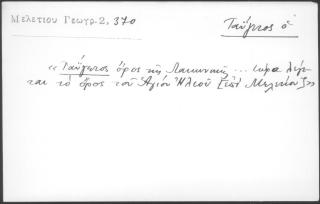 Μελετίου Γεωγρ. 2, 370
Ταΰγετος ὁ
« Ταΰγετος ὄρος τῆς Λακωνικῆς ... τώρα λέγε-
ται τὸ ὄρος τοῦ Ἁγίου Ἠλιοῦ [ἐπὶ Μελετίου] »